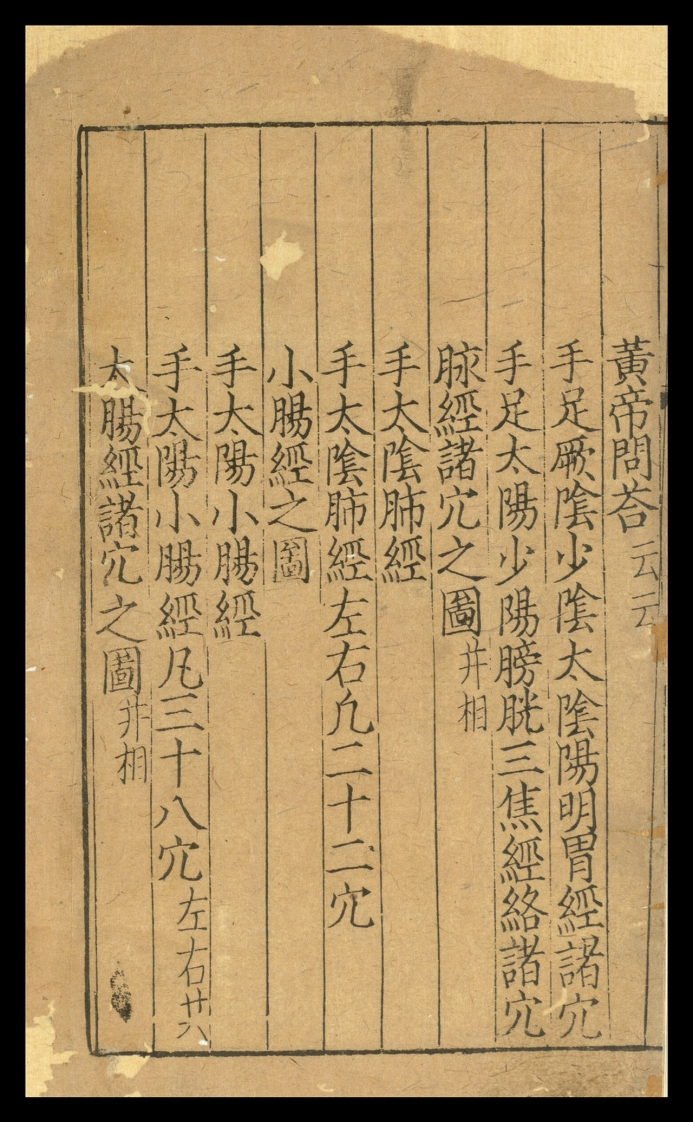 黃帝問荅云云
手足厥隂少隂太隂陽明胃經諸穴
手足太陽少陽膀胱三焦經絡諸穴
脉經諸穴之圖并相
手太隂肺經
手太隂肺經左右凢二十二穴
小膓經之圖
手太陽小膓經
手太陽小膓經凡三十八穴左右廿八
大膓經諸穴之圖并相